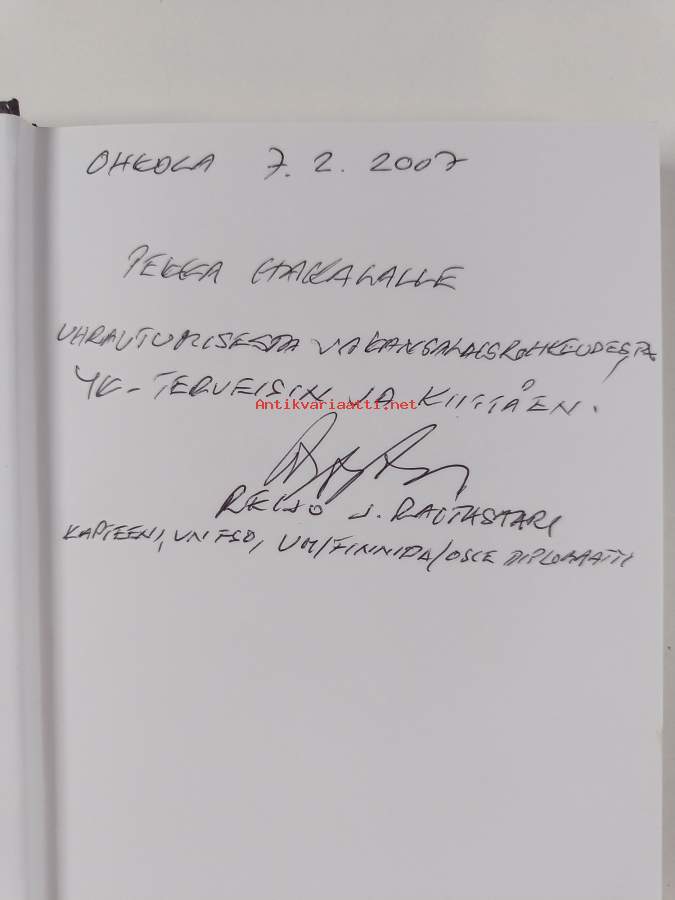 OHKOLA 7. 2. 2007
PEKKA HAKALALLE
UHRAUTUMISESTA JA KANSALAISROHKEUDESTA
YK-TERVEISIN JA KIITTÄEN.
Antikvariaatti.net
REIJO J. RAUTASAARI
KAPTEENI, UN FSO, UM/FINNIDA/OSCE DIPLOMAATTI